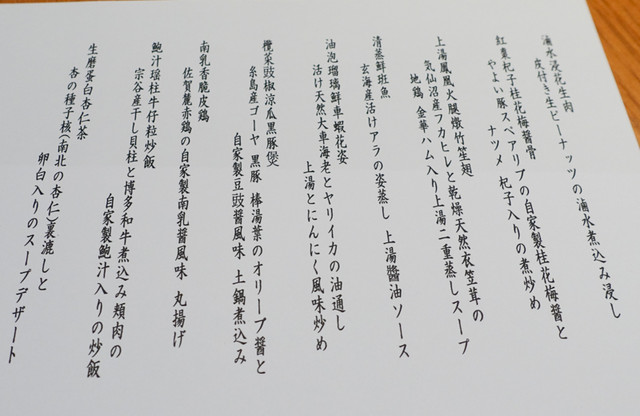 滷水浸花生肉
皮付き生ピーナッツの滷水煮込み浸し
紅棗杞子桂花梅醬骨
やよい豚スペアリブの自家製桂花梅醬と
ナツメ 杞子入りの煮炒め
上湯鳳凰火腿燉竹笙翅
気仙沼産フカヒレと乾燥天然衣笠茸の
地鶏 金華ハム入り上湯二重蒸しスープ
清蒸鮮斑魚
玄海産活けアラの姿蒸し 上湯醬油ソース
油泡瑠璃鮮車蝦花姿
活け天然大車海老とヤリイカの油通し
上湯とにんにく風味炒め
欖菜豉椒涼瓜黒豚煲
糸島産ゴーヤ 黒豚 棒湯葉のオリーブ醬と
自家製豆豉醬風味 土鍋煮込み
南乳香脆皮鶏
佐賀麓赤鶏の自家製南乳醬風味 丸揚げ
鮑汁瑶柱牛仔粒炒飯
宗谷産干し貝柱と博多和牛煮込み頬肉の
自家製鮑汁入りの炒飯
生磨蛋白杏仁茶
杏の種子核(南北の杏仁)裏漉しと
卵白入りのスープデザート